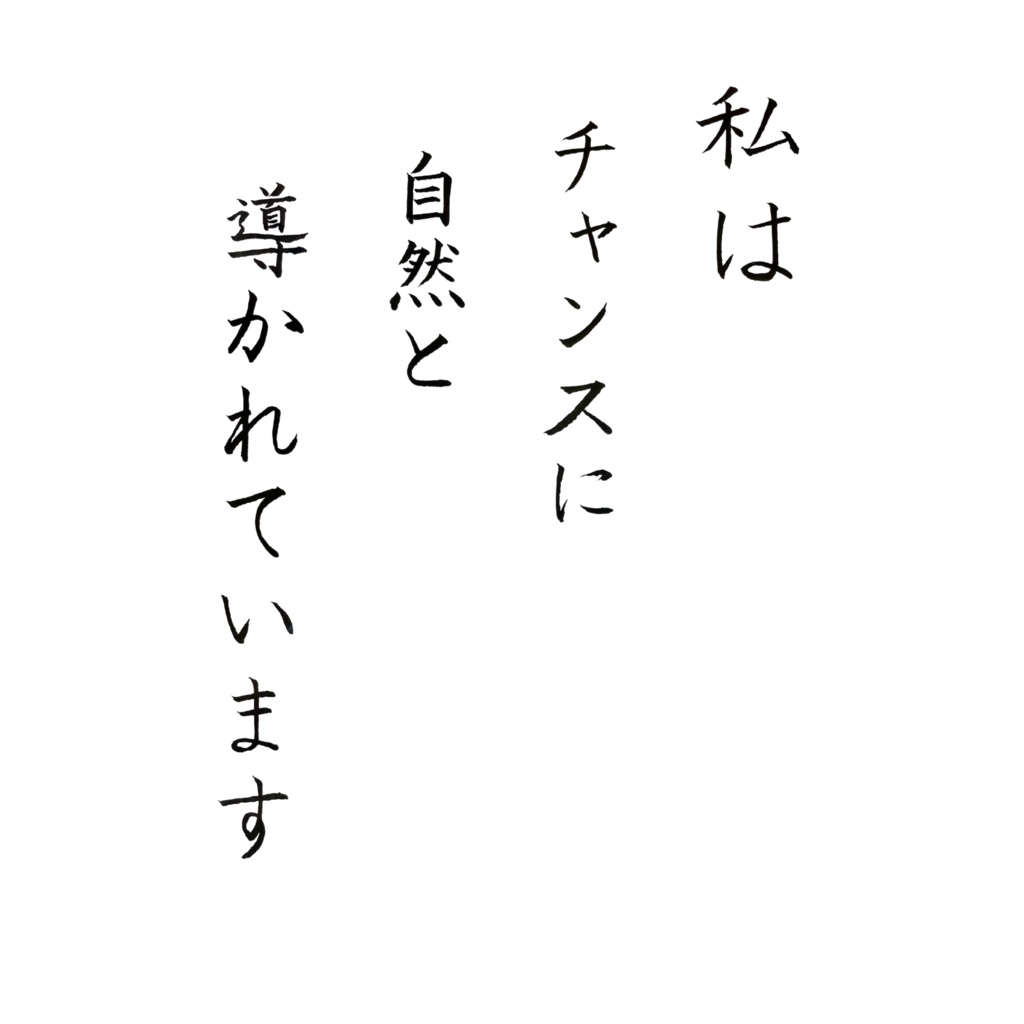 私は
チャンスに
自然と
導かれています